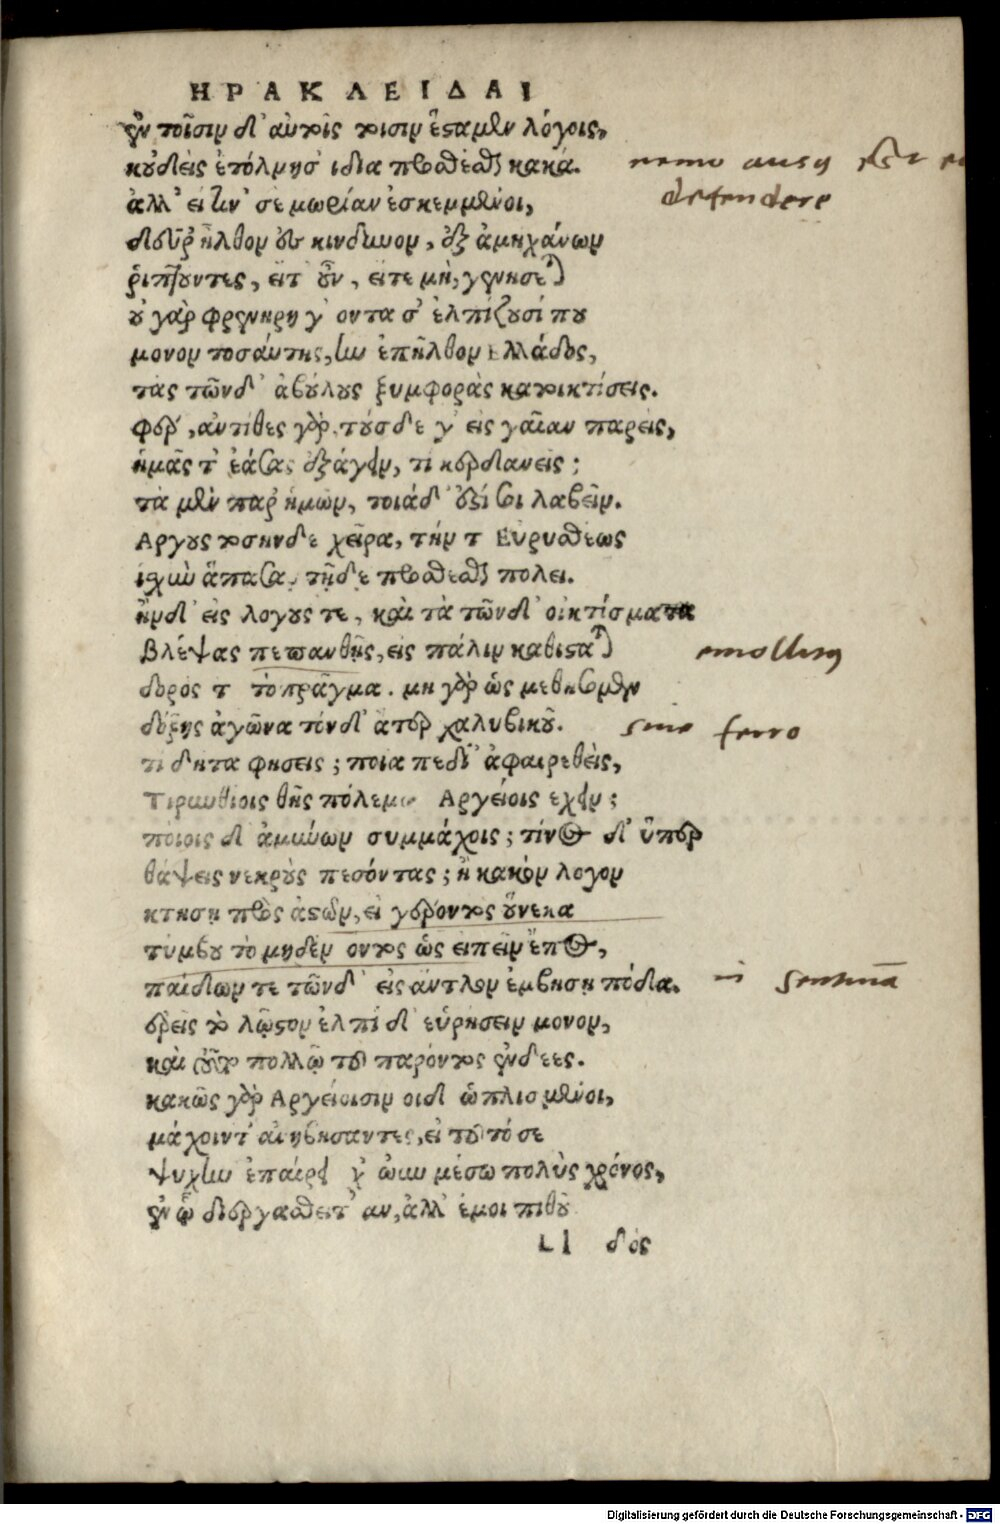 ΗΡΑΚΛΕΙΔΑΙ
ἐν τοῖσιν δ' αὐτοῖς τοισὶν ἕσταμεν λόγοις,
κοὐδεὶς ἐτόλμησ' ἴδια προσθέσθαι κακά.
nemo ausus est
defendere
ἀλλ' εἴ τιν' σὲ μωρίαν ἐσκεμμένοι,
δεῦρ' ἦλθον ἢ κίνδυνον, ἐξ ἀμηχάνων
ῥίπτοντες, εἴτ' οὖν, εἴτε μὴ, γενήσεται
οὐ γὰρ φρενήρη γ' ὄντα σ' ἐλπίζουσί που
μόνον τοσαύτης, ἣν ἐπῆλθον Ἑλλάδος,
τὰς τῶνδ' ἀβούλους ξυμφορὰς κατοικτίσεις.
φέρ', ἀντίθες γὰρ, τούσδε γ' εἰς γαῖαν παρεὶς,
ἡμᾶς τ' ἐάσας ἐξάγειν, τί κερδανεῖς;
τὰ μὲν παρ' ἡμῶν, τοιάδ' ἐστί σοι λαβεῖν.
Ἄργους τοσήνδε χεῖρα, τήν τ' Εὐρυσθέως
ἰσχὺν ἅπασαν τῇδε προσθέσθαι πόλει.
ἢν δ' εἰς λόγους τε, καὶ τὰ τῶνδ' οἰκτίσματα
βλέψας πεπανθῇς, εἰς πάλιν καθίσταται
emollitus
δορὸς τ τὸ πρᾶγμα. μὴ γὰρ ὡς μεθήσομεν
δόξῃς ἀγῶνα τόνδ' ἄτερ χαλυβικοῦ.
sine ferro
τί δῆτα φήσεις; ποῖα πεδί' ἀφαιρεθεὶς,
Τιρυνθίοις θῇς πόλεμον Ἀργείοις ἔχειν;
ποίοις δ' ἀμύνων συμμάχοις; τίνος δ' ὕπερ
θάψεις νεκροὺς πεσόντας; ἢ κακὸν λόγον
κτήσῃ πρὸς ἀστῶν, εἰ γέροντος οὕνεκα
τύμβου τὸ μηδὲν ὄντος ὡς εἰπεῖν ἔπος,
παίδων τε τῶνδ' εἰς ἄντλον ἐμβήσῃ πόδα.
in sentinā
ἐρεῖς τὸ λῷστον ἐλπίδ' εὑρήσειν μόνον,
καὶ τοῦτο πολλῷ τοῦ παρόντος ἐνδεές.
κακῶς γὰρ Ἀργείοισιν οἵδ' ὡπλισμένοι,
μάχοιντ' ἂν ἡβήσαντες, εἰ τοῦτό σε
ψυχὴν ἐπαίρει γ' ὧν μέσῳ πολὺς χρόνος,
ἐν ᾧ διεργασθεῖτ' ἂν, ἀλλ' ἐμοὶ πιθοῦ
Ll δὸς
Digitalisierung gefördert durch die Deutsche Forschungsgemeinschaft - DFG